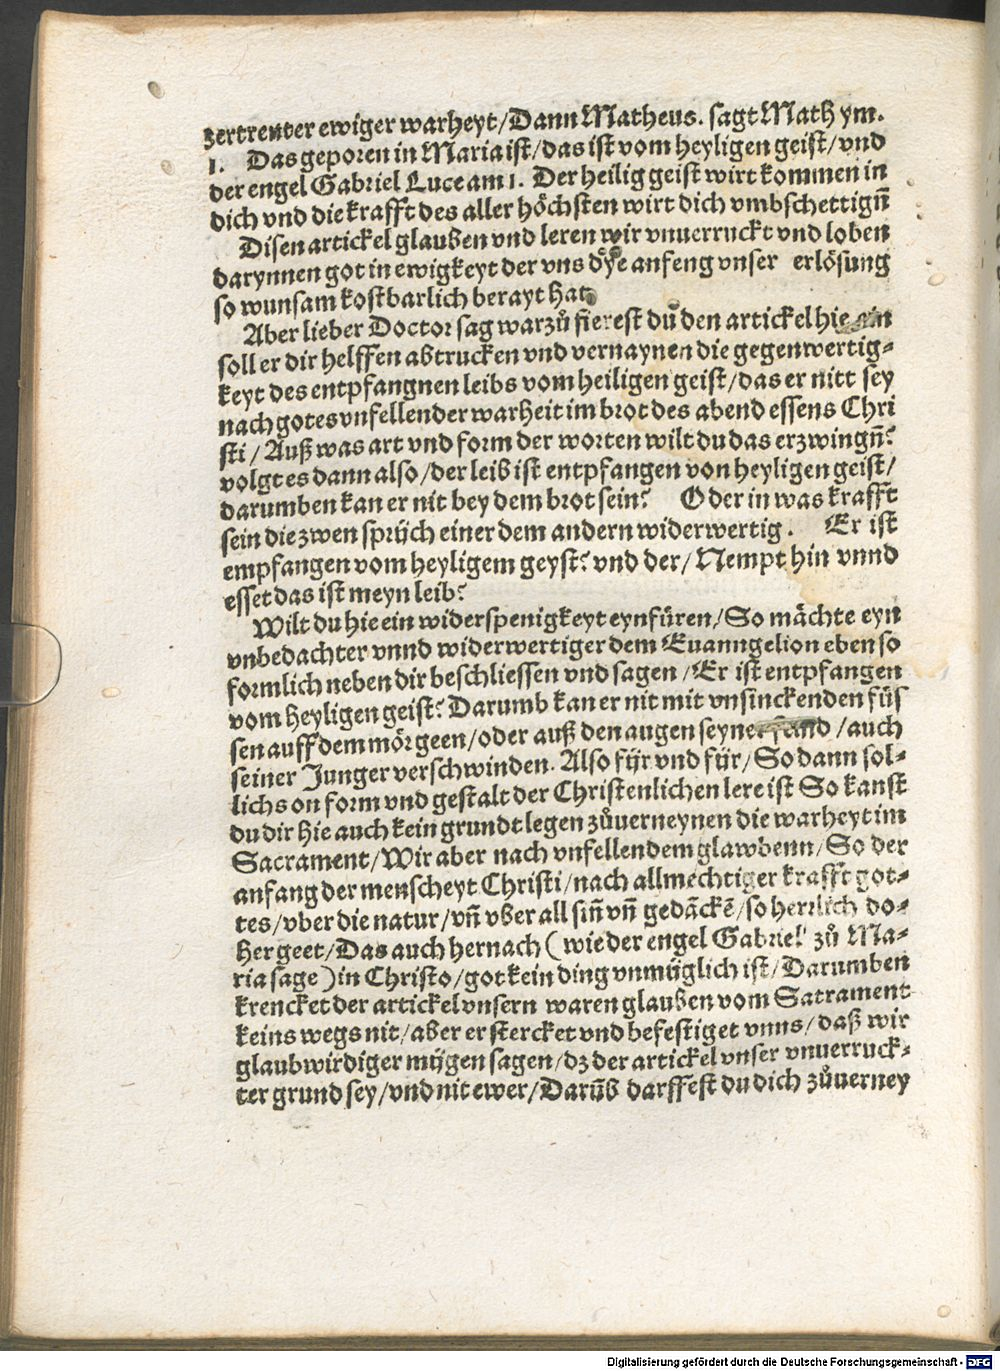 zertrenter ewiger warheyt/Dann Matheus. sagt Math ym.
1. Das geporen in Maria ist/das ist vom heyligen geist/vnd
der engel Gabriel Luce am 1. Der heilig geist wirt kommen in
dich vnd die krafft des aller höchsten wirt dich vmbschettign̄
Disen artickel glauben vnd leren wir vnuerruckt vnd loben
darynnen got in ewigkeyt der vns dye anfeng vnser erlösung
so wunsam kostbarlich berayt hat
Aber lieber Doctor sag warzů fierest du den artickel hie ein
soll er dir helffen abtrucken vnd vernaynen die gegenwertig-
keyt des entpfangnen leibs vom heiligen geist/das er nitt sey
nach gotes vnfellender warheit im brot des abend essens Chri
sti/Auß was art vnd form der worten wilt du das erzwingn̄?
volgt es dann also/der leib ist entpfangen von heyligen geist/
darumben kan er nit bey dem brot sein? Oder in was krafft
sein die zwen sprüch einer dem andern widerwertig. Er ist
empfangen vom heyligem geyst? vnd der/Nempt hin vnnd
esset das ist meyn leib?
Wilt du hie ein widerspenigkeyt eynfüren/So mächte eyn
vnbedachter vnnd widerwertiger dem Euanngelion eben so
formlich neben dir beschliessen vnd sagen/Er ist entpfangen
vom heyligen geist? Darumb kan er nit mit vnsinckenden füs
sen auff dem mör geen/oder auß den augen seyner feind/auch
seiner Junger verschwinden. Also für vnd für/So dann sol-
lichs on form vnd gestalt der Christenlichen lere ist So kanst
du dir hie auch kein grundt legen zůuerneynen die warheyt im
Sacrament/Wir aber nach vnfellendem glawbenn/So der
anfang der menscheyt Christi/nach allmechtiger krafft got-
tes/vber die natur/vn̄ vber all sin̄ vn̄ gedäckē/so herrlich do-
her geet/Das auch hernach (wie der engel Gabriel zů Ma-
ria sage) in Christo/got kein ding vnmüglich ist/Darumben
krencket der artickel vnsern waren glauben vom Sacrament
keins wegs nit/aber er stercket vnd befestiget vnns/daß wir
glaubwirdiger mügen sagen/dz der artickel vnser vnuerruck-
ter grund sey/vnd nit ewer/Darūb darffest du dich zůuerney
Digitalisierung gefördert durch die Deutsche Forschungsgemeinschaft - DFG